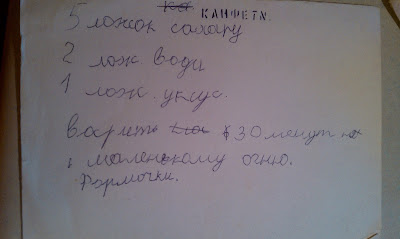 КАНФЕТЫ.
5 ложок сахару
2 лож води
1 лож. уксус.
Варить 30 менут на
маленькому огню.
Формочки.